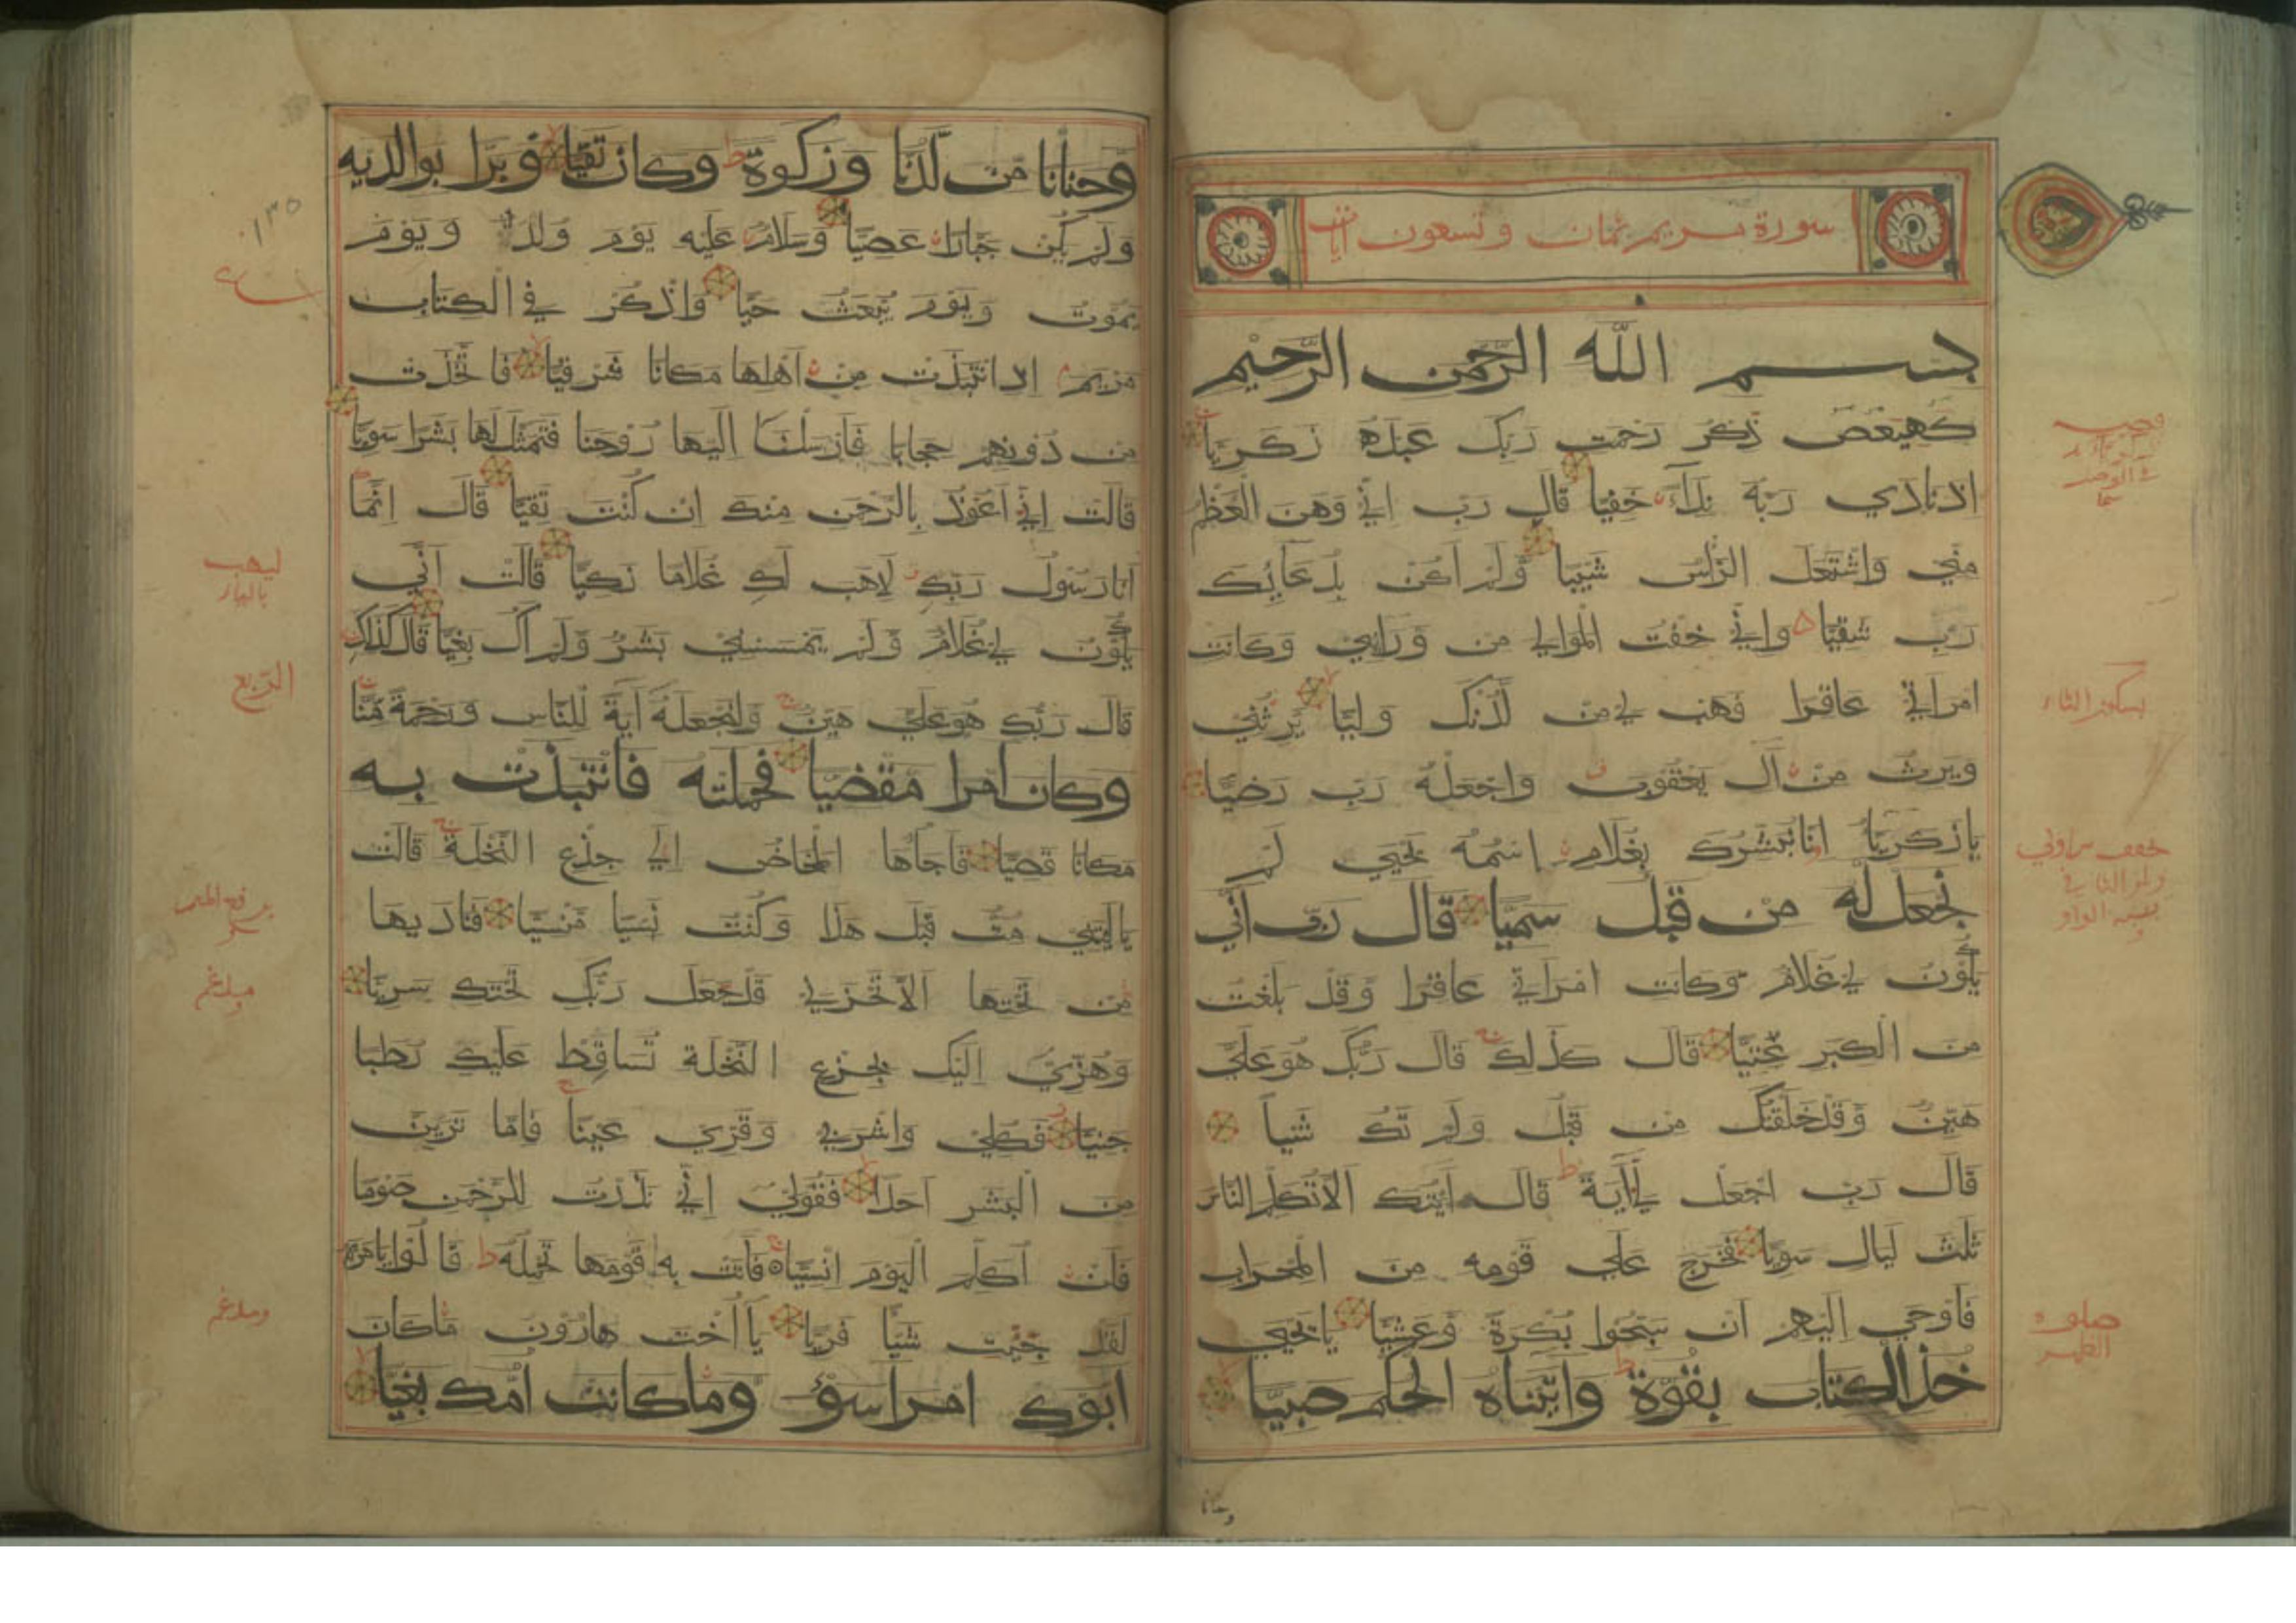 سورة مريم ثمان وتسعون آيات
بسم الله الرحمن الرحيم
كهيعص ذكر رحمت ربك عبده زكريا
اذ نادي ربه نداء خفيا قال رب اني وهن العظم
مني واشتعل الراس شيبا ولم اكن بدعائك
رب شقيا واني خفت الموالي من وراءي وكانت
امراتي عاقرا فهب لي من لدنك وليا يرثني
ويرث من آل يعقوب واجعله رب رضيا
يا زكريا انا نبشرك بغلام اسمه يحيي لم
نجعل له من قبل سميا قال رب اني
يكون لي غلام وكانت امراتي عاقرا وقد بلغت
من الكبر عتيا قال كذلك قال ربك هو علي
هين وقد خلقتك من قبل ولم تك شيأ
قال رب اجعل لي آية قال آيتك الا تكلم الناس
ثلث ليال سويا فخرج علي قومه من المحراب
فأوحي اليهم ان سبحوا بكرة وعشيا يا يحيي
خذ الكتاب بقوة واتيناه الحكم صبيا
وحنانا
بسكون الثاء
صلوة
الظهر
وحنانا من لدنا وزكوة وكان تقيا وبرا بوالديه
ولم يكن جبارا عصيا وسلام عليه يوم ولد ويوم
يموت ويوم يبعث حيا واذكر في الكتاب
مريم اذ انتبذت من اهلها مكانا شرقيا فاتخذت
من دونهم حجابا فارسلنا اليها روحنا فتمثل لها بشرا سويا
قالت اني اعوذ بالرحمن منك ان كنت تقيا قال انما
انا رسول ربك لاهب لك غلاما زكيا قالت اني
يكون لي غلام ولم يمسسني بشر ولم اك بغيا قال كذلك
قال ربك هو علي هين ولنجعله آية للناس ورحمة منا
وكان امرا مقضيا فحملته فانتبذت به
مكانا قصيا فاجاءها المخاض الي جذع النخلة قالت
يا ليتني مت قبل هذا وكنت نسيا منسيا فناديها
من تحتها الا تحزني قد جعل ربك تحتك سريا
وهزي اليك بجذع النخلة تساقط عليك رطبا
جنيا فكلي واشربي وقري عينا فاما ترين
من البشر احدا فقولي اني نذرت للرحمن صوما
فلن اكلم اليوم انسيا فاتت به قومها تحمله قالوا يا مريم
لقد جئت شيأ فريا يا اخت هارون ما كان
ابوك امرا سوء وما كانت امك بغيا
١٣٥
ليهب
بالياء
الربع
مدغم
ومدغم